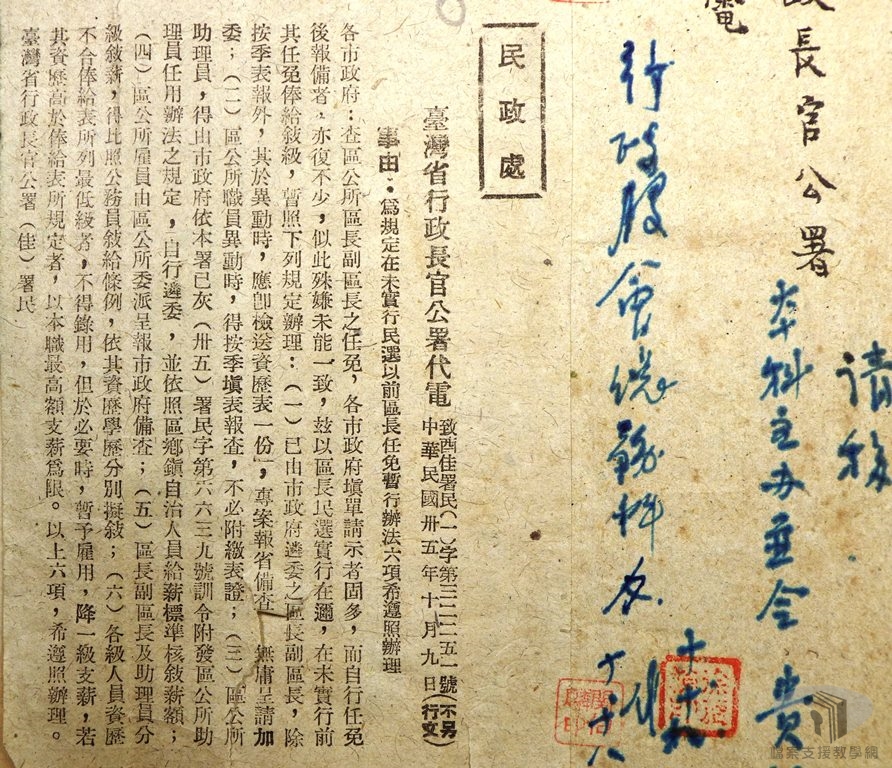 政長官公署
電
請移
本科主办並会 貴
行政股會總務科
十、十八
民政處
臺灣省行政長官公署代電
致酉佳署民(一)字第三二二五一號(不另行文)
中華民國卅五年十月九日
事由:為規定在未實行民選以前區長任免暫行辦法六項希遵照辦理
各市政府:查區公所區長副區長之任免,各市政府塡單請示者固多,而自行任免
後報備者,亦復不少,似此殊嫌未能一致,玆以區長民選實行在邇,在未實行前
其任免俸給敍級,暫照下列規定辦理:(一)已由市政府遴委之區長副區長,除
按季表報外,其於異動時,應卽檢送資歷表一份,專案報省備查,無庸呈請加
委;(二)區公所職員異動時,得按季塡表報查,不必附繳表證;(三)區公所
助理員,得由市政府依本署已灰(卅五)署民字第六六三九號訓令附發區公所助
理員任用辦法之規定,自行遴委,並依照區鄉鎭自治人員給薪標準核敍薪額;
(四)區公所雇員由區公所委派呈報市政府備查;(五)區長副區長及助理員分
級敍薪,得比照公務員敍給條例,依其資歷學歷分別擬敍;(六)各級人員資歷
不合俸給表所列最低級者,不得錄用,但於必要時,暫予雇用,降一級支薪,若
其資歷高於俸給表所規定者,以本職最高額支薪爲限。以上六項,希遵照辦理。
臺灣省行政長官公署(佳)署民
檔案支援教學網